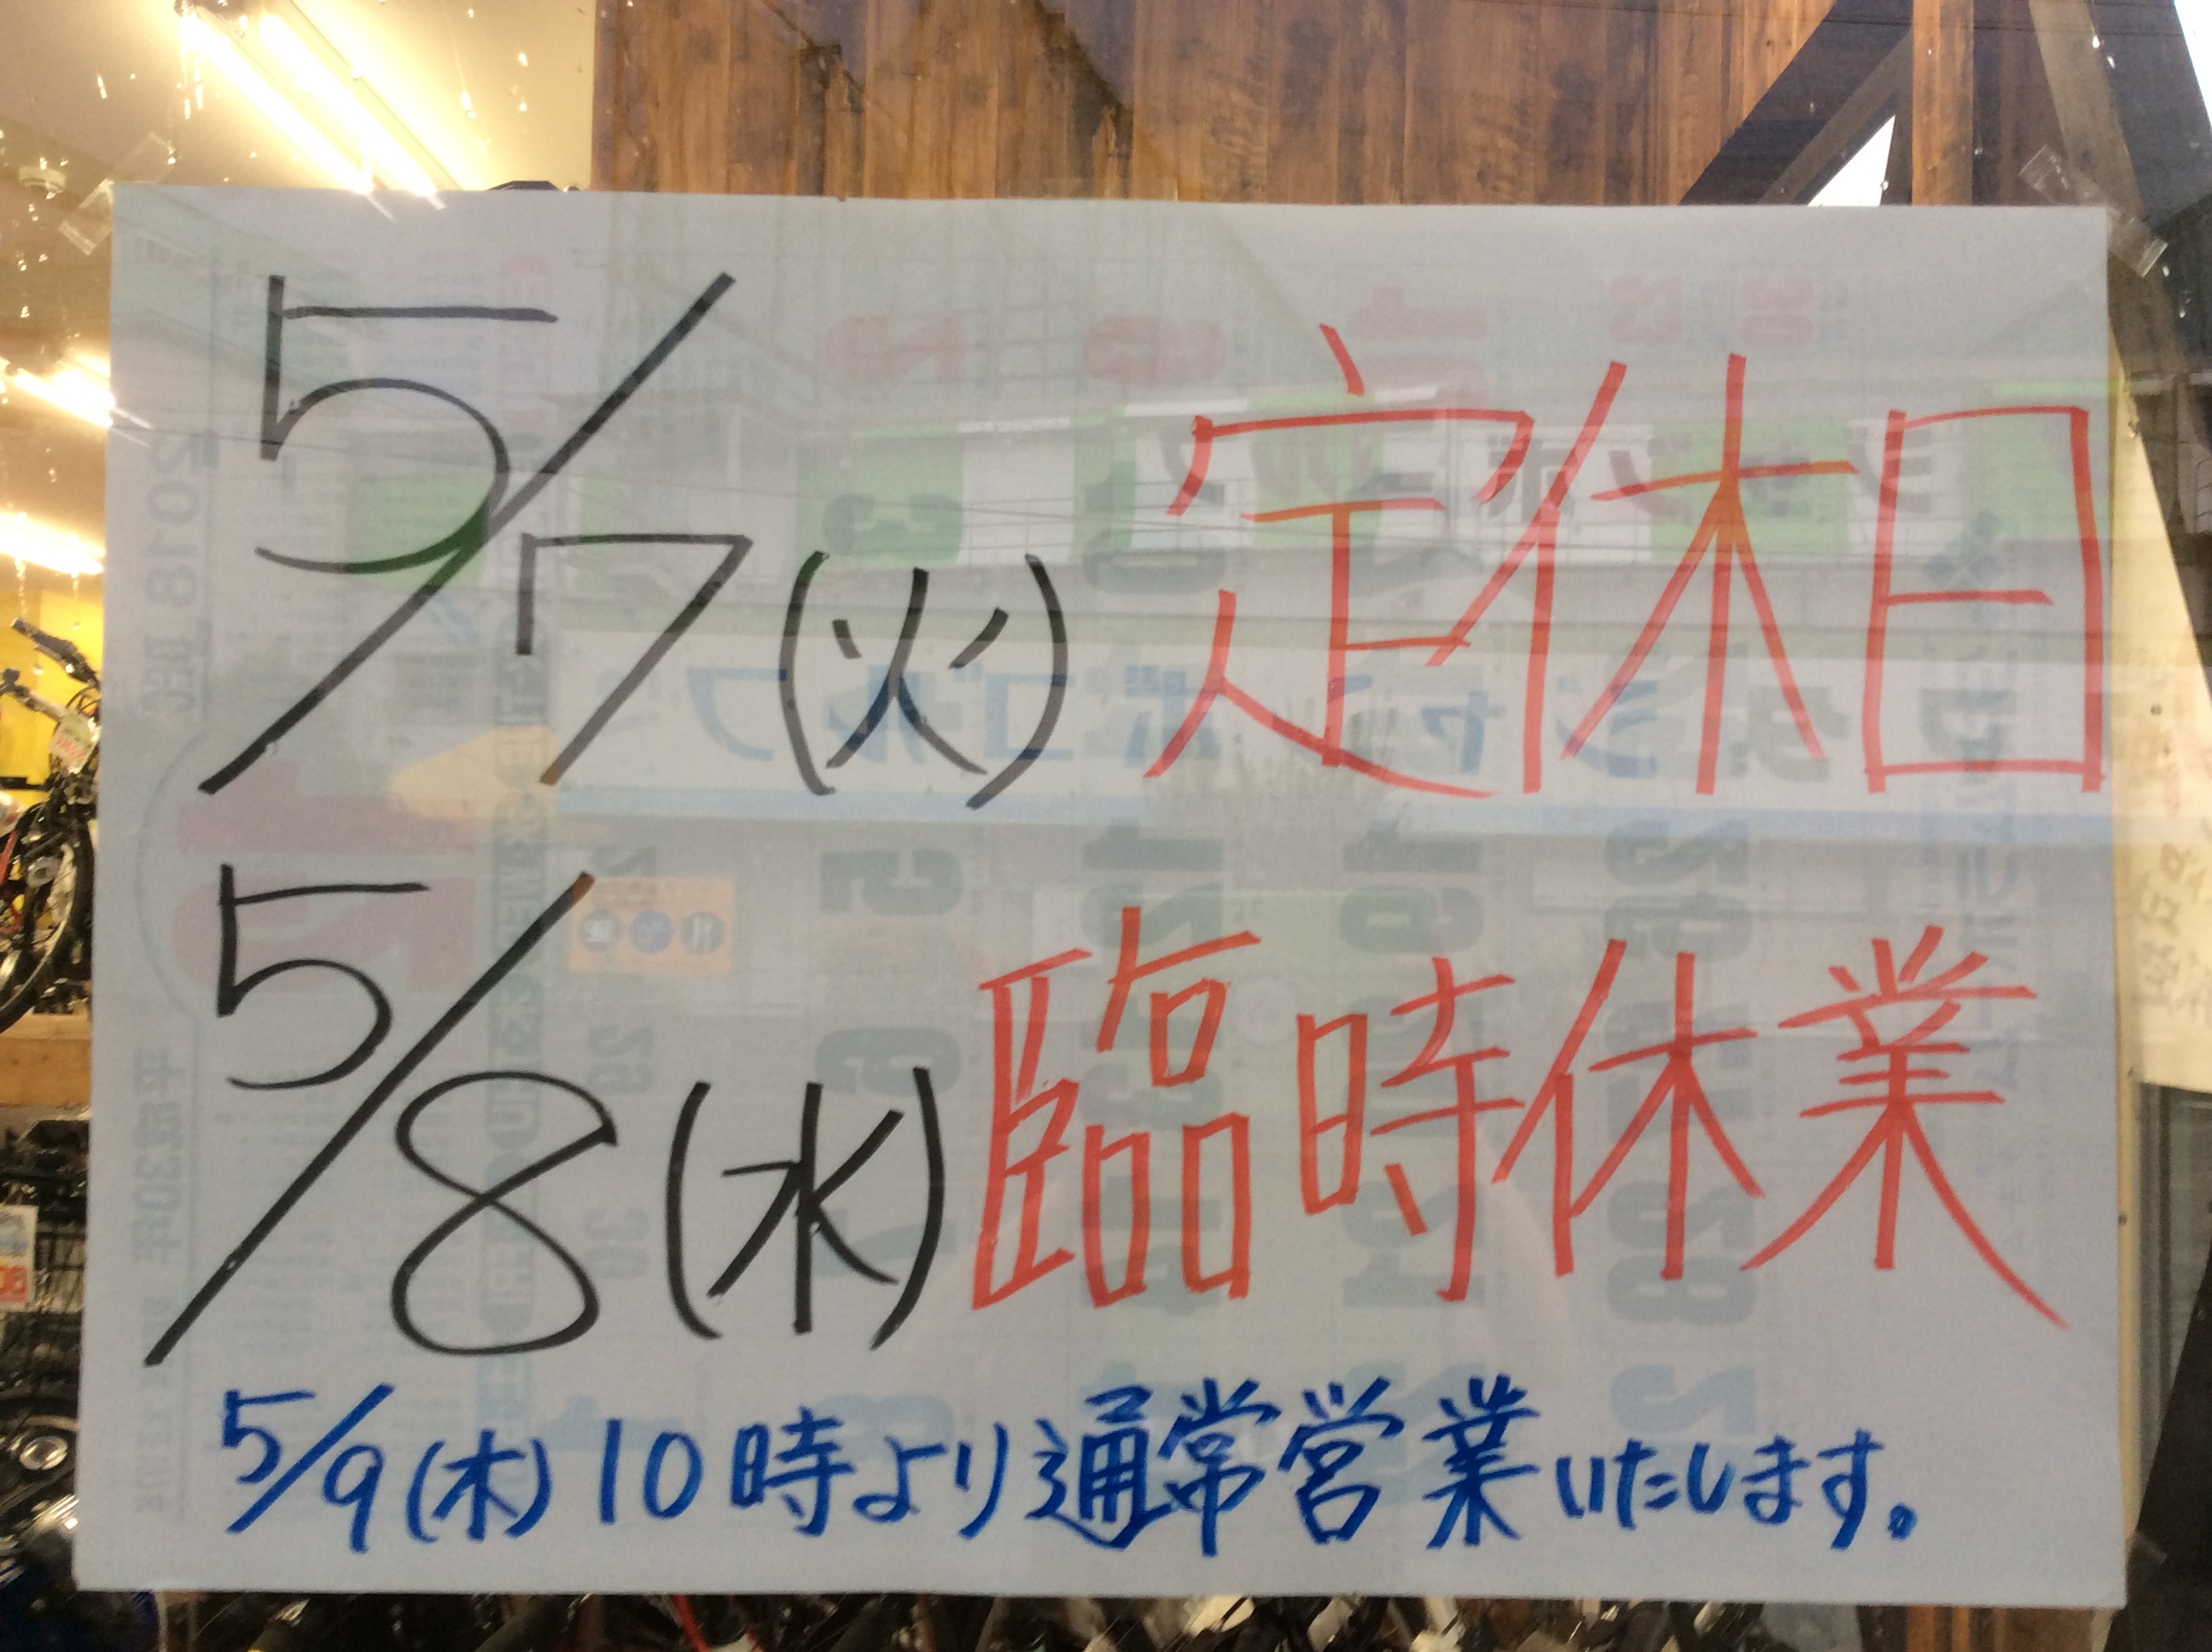 5/7(火)定休日
5/8(水)臨時休業
5/9(木)10時より通常営業いたします。